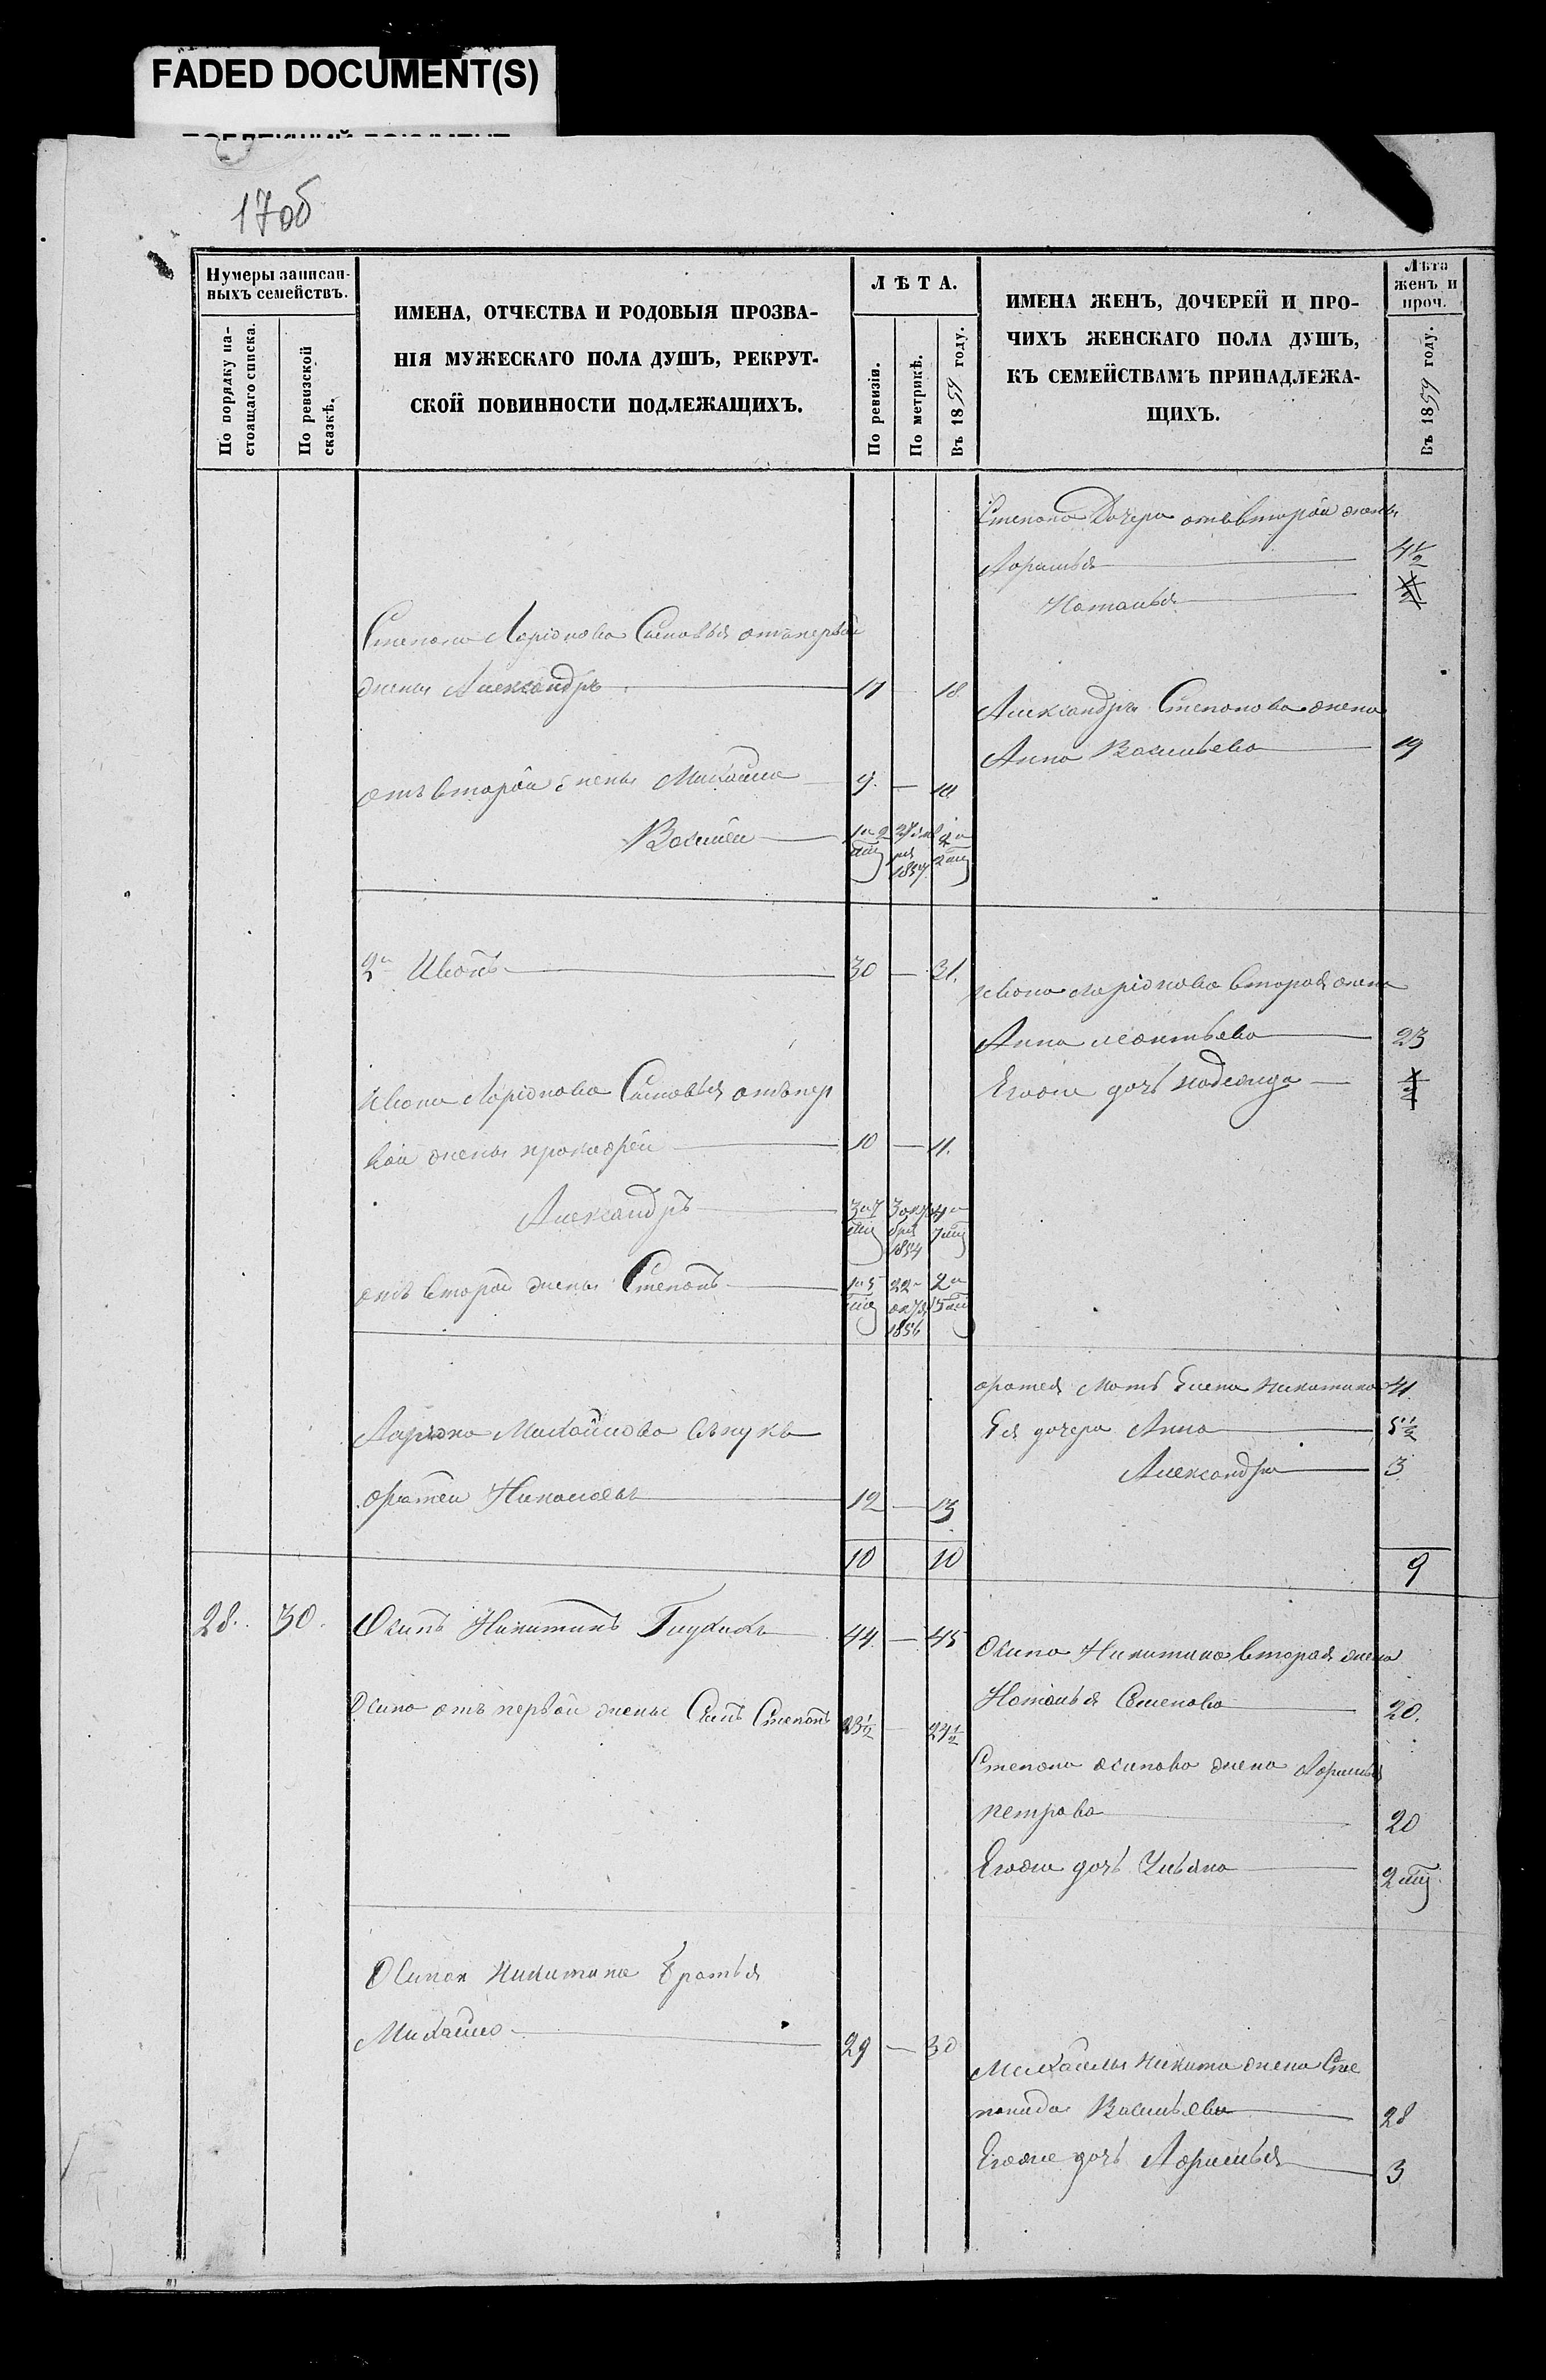 FADED DOCUMENT(S)
17об
Нумеры записан-
ныхъ семействъ.
По порядку на-
стоящаго списка.
По ревизской
сказкѣ.
ИМЕНА, ОТЧЕСТВА И РОДОВЫЯ ПРОЗВА-
НІЯ МУЖЕСКАГО ПОЛА ДУШЪ, РЕКРУТ-
СКОЙ ПОВИННОСТИ ПОДЛЕЖАЩИХЪ.
ЛѢТА.
По ревизіи.
По метрикѣ.
Въ 1859 году.
ИМЕНА ЖЕНЪ, ДОЧЕРЕЙ И ПРО-
ЧИХЪ ЖЕНСКАГО ПОЛА ДУШЪ,
КЪ СЕМЕЙСТВАМЪ ПРИНАДЛЕЖА-
ЩИХЪ.
Лѣта
женъ и
проч.
Въ 1859 году.
Степана Дочери отъ второй жены
4 1/2
Наталья
Степана Ларіонова Сыновья отъ первой
жены Александръ 17 18
Александры Степанова жена
Анна Васильева 19
отъ второй жены Михайла 9 — 10
Василей
1857
2й Иванъ 30 — 31.
Ивана Ларіонова вторая жена
Анна Леонтьева 23
Егоже дочь Надежда
Ивана Ларіонова Сыновья отъ пер
вой жены 10 — 11.
Александръ
1854
отъ второй жены Степанъ
1856
Мать Елена Никитина 41
Ея дочери Анна 5 1/2
Александра 3
Ларіона Михайлова внукъ
Николаевъ 12 — 13
10 10 9
28. 30. Осипъ Никитинъ 44 — 45
Осипа Никитина вторая жена
Наталья Семенова 20.
Осипа отъ первой жены Сынъ Степанъ 23 1/2 — 24 1/2
Степана Осипова жена
Петрова 20
Егоже дочь Ульяна 2
Осипа Никитина братья
Михайло 29 — 30
Михайлы Никити жена Сте
панида Васильева 28
Егоже дочь 3